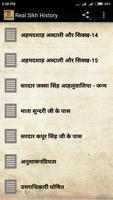 5:38 PM
Real Sikh History
अहमदशाह अब्दाली और सिक्ख-14
अहमदशाह अब्दाली और सिक्ख-15
सरदार जस्सा सिंह आहलुवालिया - जन्म
माता सुन्दरी जी के पास
सरदार कपूर सिंह जी के पास
अनुशासनप्रियता
उत्तराधिकारी घोषित